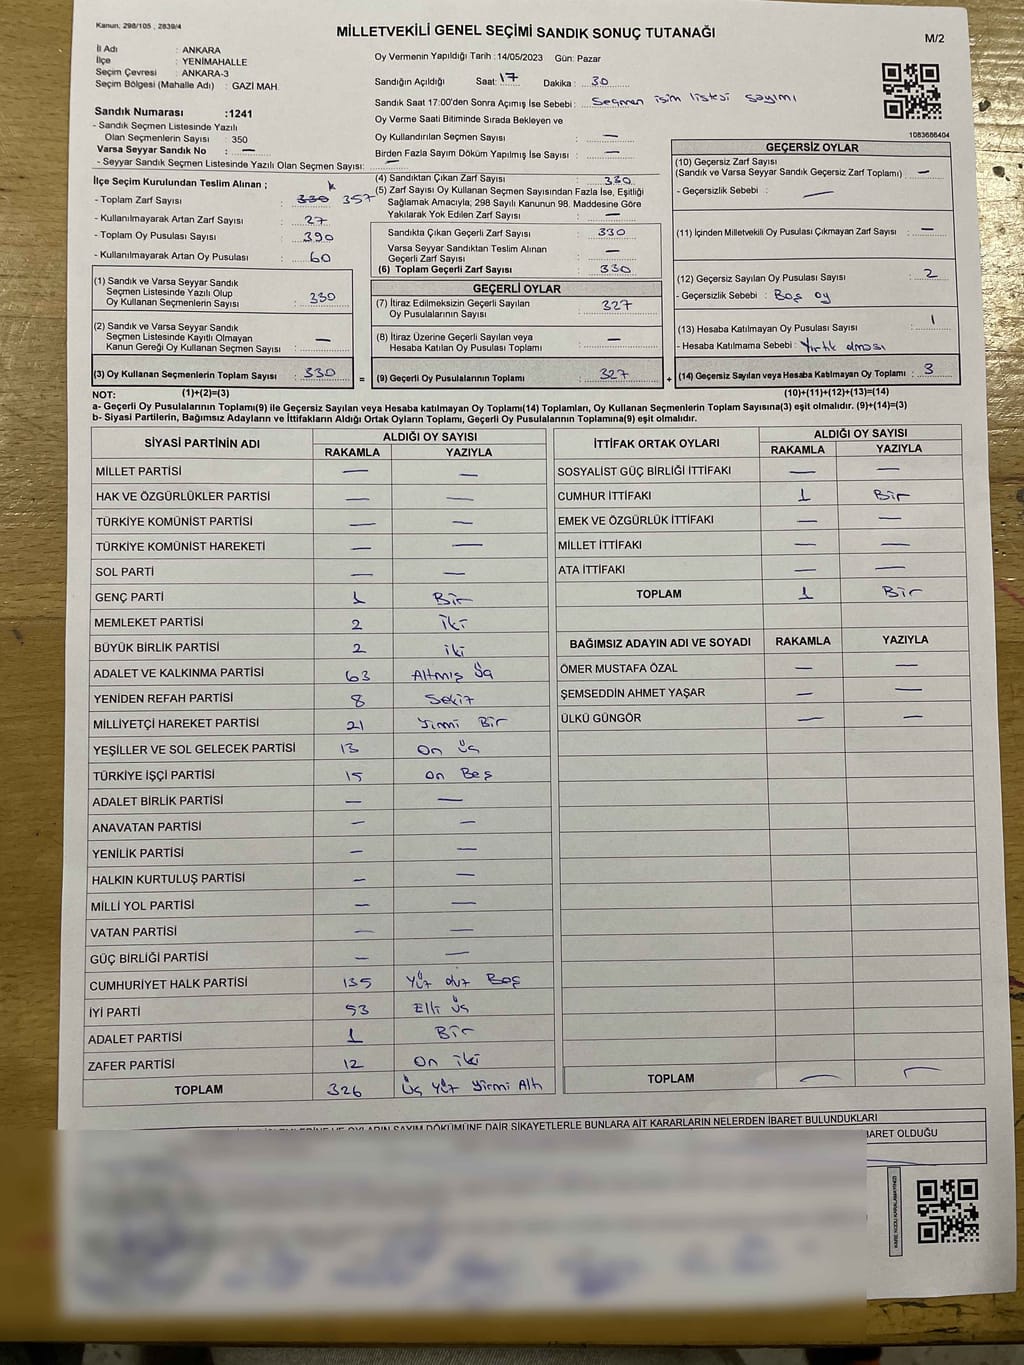 Kanun: 298/105 , 2839/4
MİLLETVEKİLİ GENEL SEÇİMİ SANDIK SONUÇ TUTANAĞI
M/2
İl Adı : ANKARA
İlçe : YENİMAHALLE
Seçim Çevresi : ANKARA-3
Seçim Bölgesi (Mahalle Adı) : GAZİ MAH.
Sandık Numarası :1241
- Sandık Seçmen Listesinde Yazılı
Olan Seçmenlerin Sayısı : 350
Varsa Seyyar Sandık No : —
- Seyyar Sandık Seçmen Listesinde Yazılı Olan Seçmen Sayısı: —
Oy Vermenin Yapıldığı Tarih :14/05/2023 Gün: Pazar
Sandığın Açıldığı Saat: 17 Dakika : 30
Sandık Saat 17:00'den Sonra Açımış İse Sebebi : Seçmen isim listesi sayımı
Oy Verme Saati Bitiminde Sırada Bekleyen ve
Oy Kullandırılan Seçmen Sayısı : —
Birden Fazla Sayım Döküm Yapılmış İse Sayısı : —
1083686404
İlçe Seçim Kurulundan Teslim Alınan ;
- Toplam Zarf Sayısı : 330 357
- Kullanılmayarak Artan Zarf Sayısı : 27
- Toplam Oy Pusulası Sayısı : 390
- Kullanılmayarak Artan Oy Pusulası : 60
(1) Sandık ve Varsa Seyyar Sandık
Seçmen Listesinde Yazılı Olup
Oy Kullanan Seçmenlerin Sayısı : 330
(2) Sandık ve Varsa Seyyar Sandık
Seçmen Listesinde Kayıtlı Olmayan
Kanun Gereği Oy Kullanan Seçmen Sayısı : —
(3) Oy Kullanan Seçmenlerin Toplam Sayısı : 330
(4) Sandıktan Çıkan Zarf Sayısı : 330
(5) Zarf Sayısı Oy Kullanan Seçmen Sayısından Fazla İse, Eşitliği
Sağlamak Amacıyla; 298 Sayılı Kanunun 98. Maddesine Göre
Yakılarak Yok Edilen Zarf Sayısı : —
Sandıkta Çıkan Geçerli Zarf Sayısı : 330
Varsa Seyyar Sandıktan Teslim Alınan
Geçerli Zarf Sayısı : —
(6) Toplam Geçerli Zarf Sayısı : 330
GEÇERLİ OYLAR
(7) İtiraz Edilmeksizin Geçerli Sayılan
Oy Pusulalarının Sayısı : 327
(8) İtiraz Üzerine Geçerli Sayılan veya
Hesaba Katılan Oy Pusulası Toplamı : —
= (9) Geçerli Oy Pusulalarının Toplamı : 327 +
GEÇERSİZ OYLAR
(10) Geçersiz Zarf Sayısı
(Sandık ve Varsa Seyyar Sandık Geçersiz Zarf Toplamı) : —
- Geçersizlik Sebebi : —
(11) İçinden Milletvekili Oy Pusulası Çıkmayan Zarf Sayısı : —
(12) Geçersiz Sayılan Oy Pusulası Sayısı : 2
- Geçersizlik Sebebi : Boş oy
(13) Hesaba Katılmayan Oy Pusulası Sayısı : 1
- Hesaba Katılmama Sebebi : Yırtık olması
(14) Geçersiz Sayılan veya Hesaba Katılmayan Oy Toplamı : 3
NOT: (1)+(2)=(3) (10)+(11)+(12)+(13)=(14)
a- Geçerli Oy Pusulalarının Toplamı(9) ile Geçersiz Sayılan veya Hesaba katılmayan Oy Toplamı(14) Toplamları, Oy Kullanan Seçmenlerin Toplam Sayısına(3) eşit olmalıdır. (9)+(14)=(3)
b- Siyasi Partilerin, Bağımsız Adayların ve İttifakların Aldığı Ortak Oyların Toplamı, Geçerli Oy Pusulalarının Toplamına(9) eşit olmalıdır.
SİYASİ PARTİNİN ADI ALDIĞI OY SAYISI
RAKAMLA YAZIYLA
MİLLET PARTİSİ — —
HAK VE ÖZGÜRLÜKLER PARTİSİ — —
TÜRKİYE KOMÜNİST PARTİSİ — —
TÜRKİYE KOMÜNİST HAREKETİ — —
SOL PARTİ — —
GENÇ PARTİ 1 Bir
MEMLEKET PARTİSİ 2 iki
BÜYÜK BİRLİK PARTİSİ 2 iki
ADALET VE KALKINMA PARTİSİ 63 Altmış üç
YENİDEN REFAH PARTİSİ 8 Sekiz
MİLLİYETÇİ HAREKET PARTİSİ 21 Yirmi Bir
YEŞİLLER VE SOL GELECEK PARTİSİ 13 On üç
TÜRKİYE İŞÇİ PARTİSİ 15 on Beş
ADALET BİRLİK PARTİSİ — —
ANAVATAN PARTİSİ — —
YENİLİK PARTİSİ — —
HALKIN KURTULUŞ PARTİSİ — —
MİLLİ YOL PARTİSİ — —
VATAN PARTİSİ — —
GÜÇ BİRLİĞİ PARTİSİ — —
CUMHURİYET HALK PARTİSİ 135 Yüz otuz Beş
İYİ PARTİ 53 Elli üç
ADALET PARTİSİ 1 Bir
ZAFER PARTİSİ 12 On iki
TOPLAM 326 Üç Yüz Yirmi Altı
İTTİFAK ORTAK OYLARI ALDIĞI OY SAYISI
RAKAMLA YAZIYLA
SOSYALİST GÜÇ BİRLİĞİ İTTİFAKI — —
CUMHUR İTTİFAKI 1 Bir
EMEK VE ÖZGÜRLÜK İTTİFAKI — —
MİLLET İTTİFAKI — —
ATA İTTİFAKI — —
TOPLAM 1 Bir
BAĞIMSIZ ADAYIN ADI VE SOYADI RAKAMLA YAZIYLA
ÖMER MUSTAFA ÖZAL — —
ŞEMSEDDİN AHMET YAŞAR — —
ÜLKÜ GÜNGÖR — —
TOPLAM — —
OYLARIN SAYIM DÖKÜMÜNE DAİR ŞİKAYETLERLE BUNLARA AİT KARARLARIN NELERDEN İBARET BULUNDUKLARI
OLDUĞU